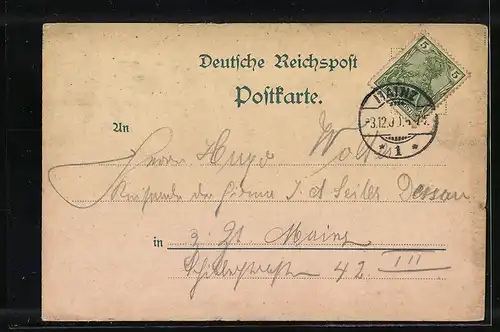 Deutsche Reichspost
Postkarte.
5
5
MAINZ
3.12.0
* 1 *
An
Herrn Hugo Wolter
Reisender der Firma J. A. Seiler Dessau
in
z. Zt. Mainz
Schillerstrasse 42 III